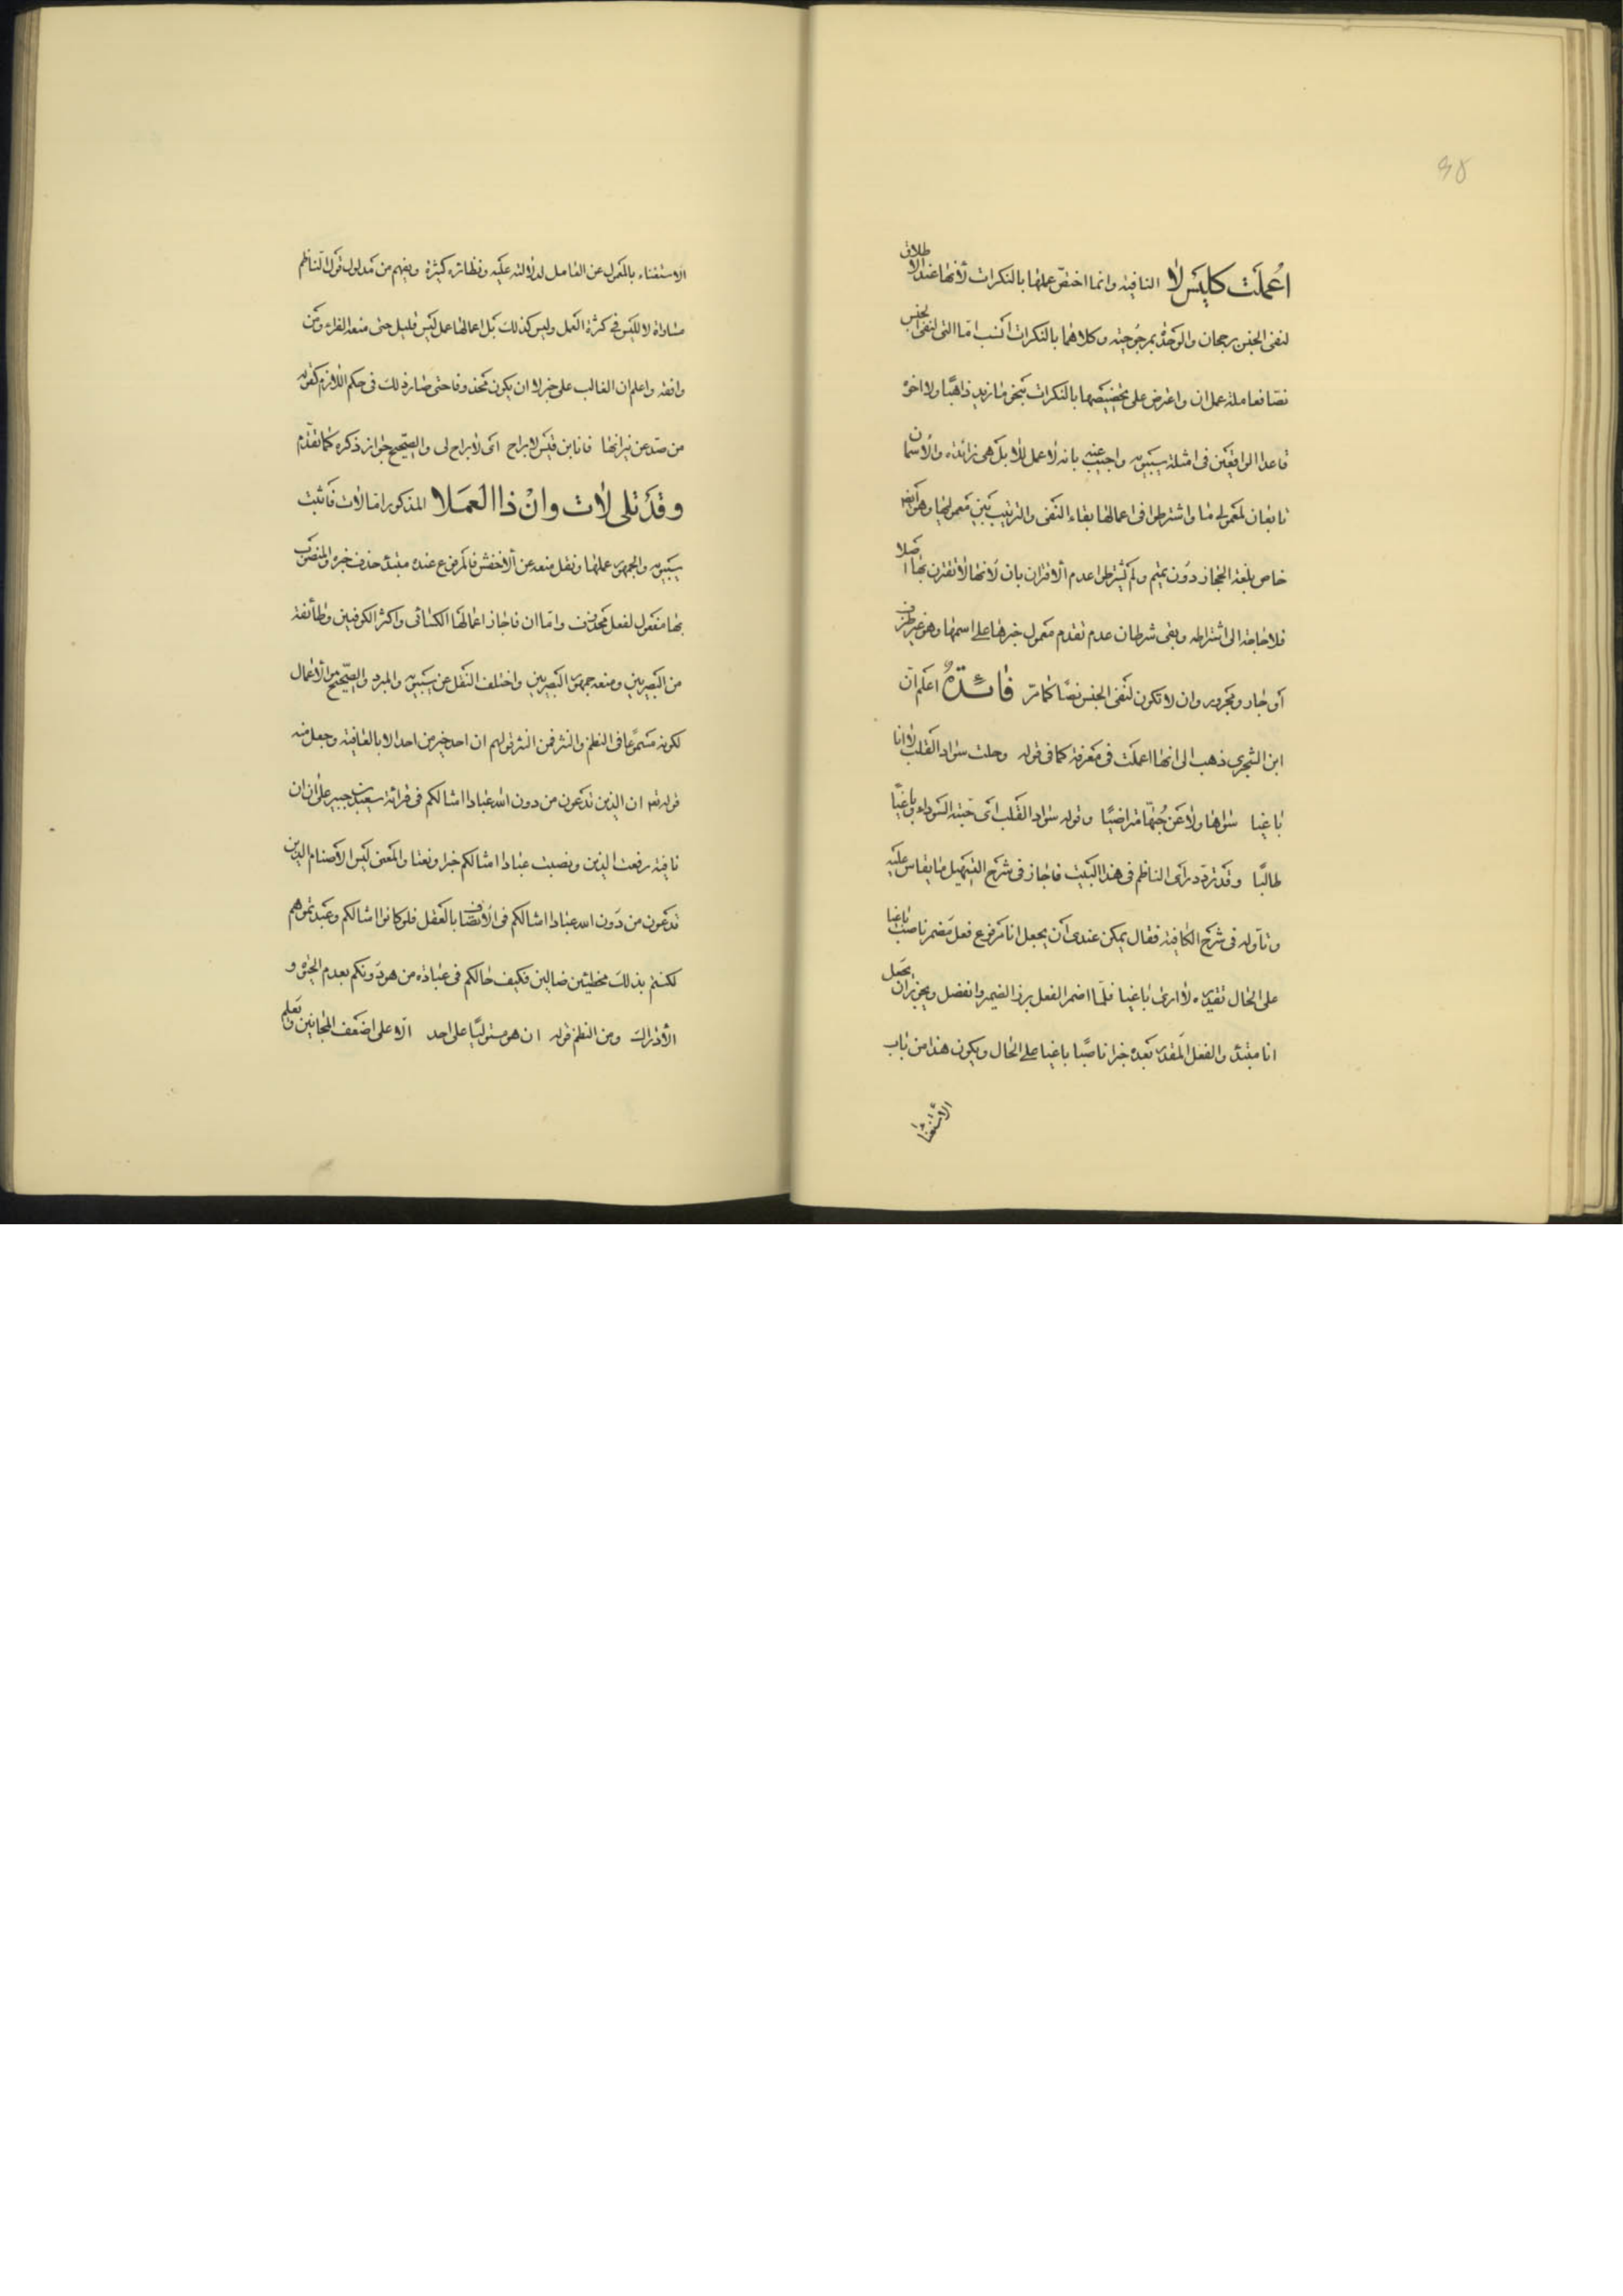 اُعملَت كلَيسَ لا النافية وانما اختصّ عملها بالنكرات لأنها عند الاطلاق
لنفى الجنس برجحان والوحدة بمرجوحية وكلاهما بالنكرات انسب امّا التى لنفى الجنس
نصّا فعاملة عمل ان واعترض على تخصيصها بالنكرات بنحو ما زيد ذاهبًا ولا اخوه
قاعدا الواقعين فى امثلة سيبويه واجيب عنه بانه لا عمل للا بل هى زائدة والاسمان
تابعان لمعمولى ما واشترطوا فى اعمالها بقاء النفى والترتيب بَين معموليها وهو ايضا
خاص بلغة الحجاز دون تميم ولم يشترطوا عدم الاقتران بان لانها لا تقترن بها اصلا
فلا حاجة الى اشتراطه وبقى شرطان عدم تقدم معمول خبرها على اسمها وهو غير ظرف
أو جار ومجرور وان لا تكون لنفى الجنس نصًا كما مرّ فائدةٌ اعلم ان
ابن الشجرى ذهب الى انها اعملت فى معرفة كما فى قوله وحلت سواد القلب لا انا
باغيا سواها ولا عَن حُبّها متراضيًا وقوله سواد القلب اى حبته السوداء وباغيًا
طالبًا وقد تردد رأى الناظم فى هذا البيت فاجاز فى شرح التسهيل ما يقاس عليه
وتأوله فى شرح الكافية فقال يمكن عندى ان يجعل انا مرفوع فعل مضمر ناصب باغيا
على الحال تقديره لا ارى باغيا فلمّا اضمر الفعل برز الضمير وانفصل ويجوز ان يجعل
انا مبتدأ والفعل المقدر بعده خبرا ناصبًا باغيا على الحال ويكون هذا من باب
الأستغنا
الاستغناء بالمعمول عن العامل لدلالته عليه ونظائره كثيرة ويفهم من مدلول قول الناظم
مساواة لا لليس فى كثرة العمل وليس كذلك بَل اعمالها عمل ليس قليل حتى منعه الفراء ومن
وافقه واعلم ان الغالب على خبر لا ان يكون محذوفا حتى صار ذلك فى حكم اللازم كقوله
من صدّ عن نيرانها فانا ابن قيس لا براح اى لا براح لى والصّحيح جواز ذكره كما تقدّم
وقَد تلى لات وانْ ذا العَمَلا المذكور امّا لات فاثبت
سيبويه والجمهور عملها ونقل منعه عن الاخفش فالمرفوع عنده مبتدأ حذف خبره والمنصوب
بها مفعول لفعل محذوف وامّا ان فاجاز اعمالها الكسائى واكثر الكوفيين وطائفة
من البصريين ومنعه جمهور البصريين واختلف النقل عن سيبويه والمبرد والصّحيح الأعمال
لكونه مسموعًا فى النظم والنثر فمن النثر قولهم ان احد خير من احد الا بالعافية وجعل منه
قوله تع ان الذين تدعون من دون الله عبادا امثالكم فى قرائة سعيد بن جبير على ان ان
نافية رفعت الذين ونصبت عبادا امثالكم خبرا ونعتا والمعنى ليس الاصنام الذين
تدعون من دَون الله عبادا امثالكم فى الاتصاف بالعقل فلو كانوا امثالكم وعبدتموهم
لكنتم بذلك مخطئين ضالين فكيف حالكم فى عبادة من هو دونكم بعدم الحيوة و
الأدراك ومن النظم قوله ان هو مستوليًا على احد الّا على اضعَف المجانين وتعلم